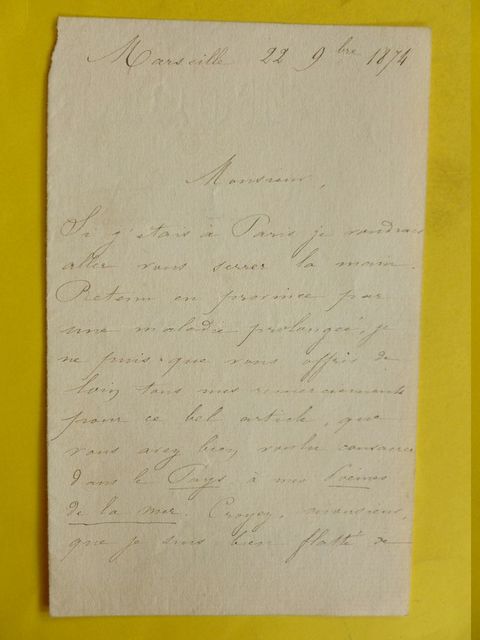 Marseille 22 9bre 1874
Monsieur,
Si j'étais à Paris je voudrais
aller vous serrer la main.
Retenu en province par
une maladie prolongée, je
ne puis que vous offrir de
loin tous mes remerciements
pour ce bel article, que
vous avez bien voulu consacrer
dans le Pays à mes Poëmes
de la mer. Croyez, monsieur,
que je suis bien flatté de